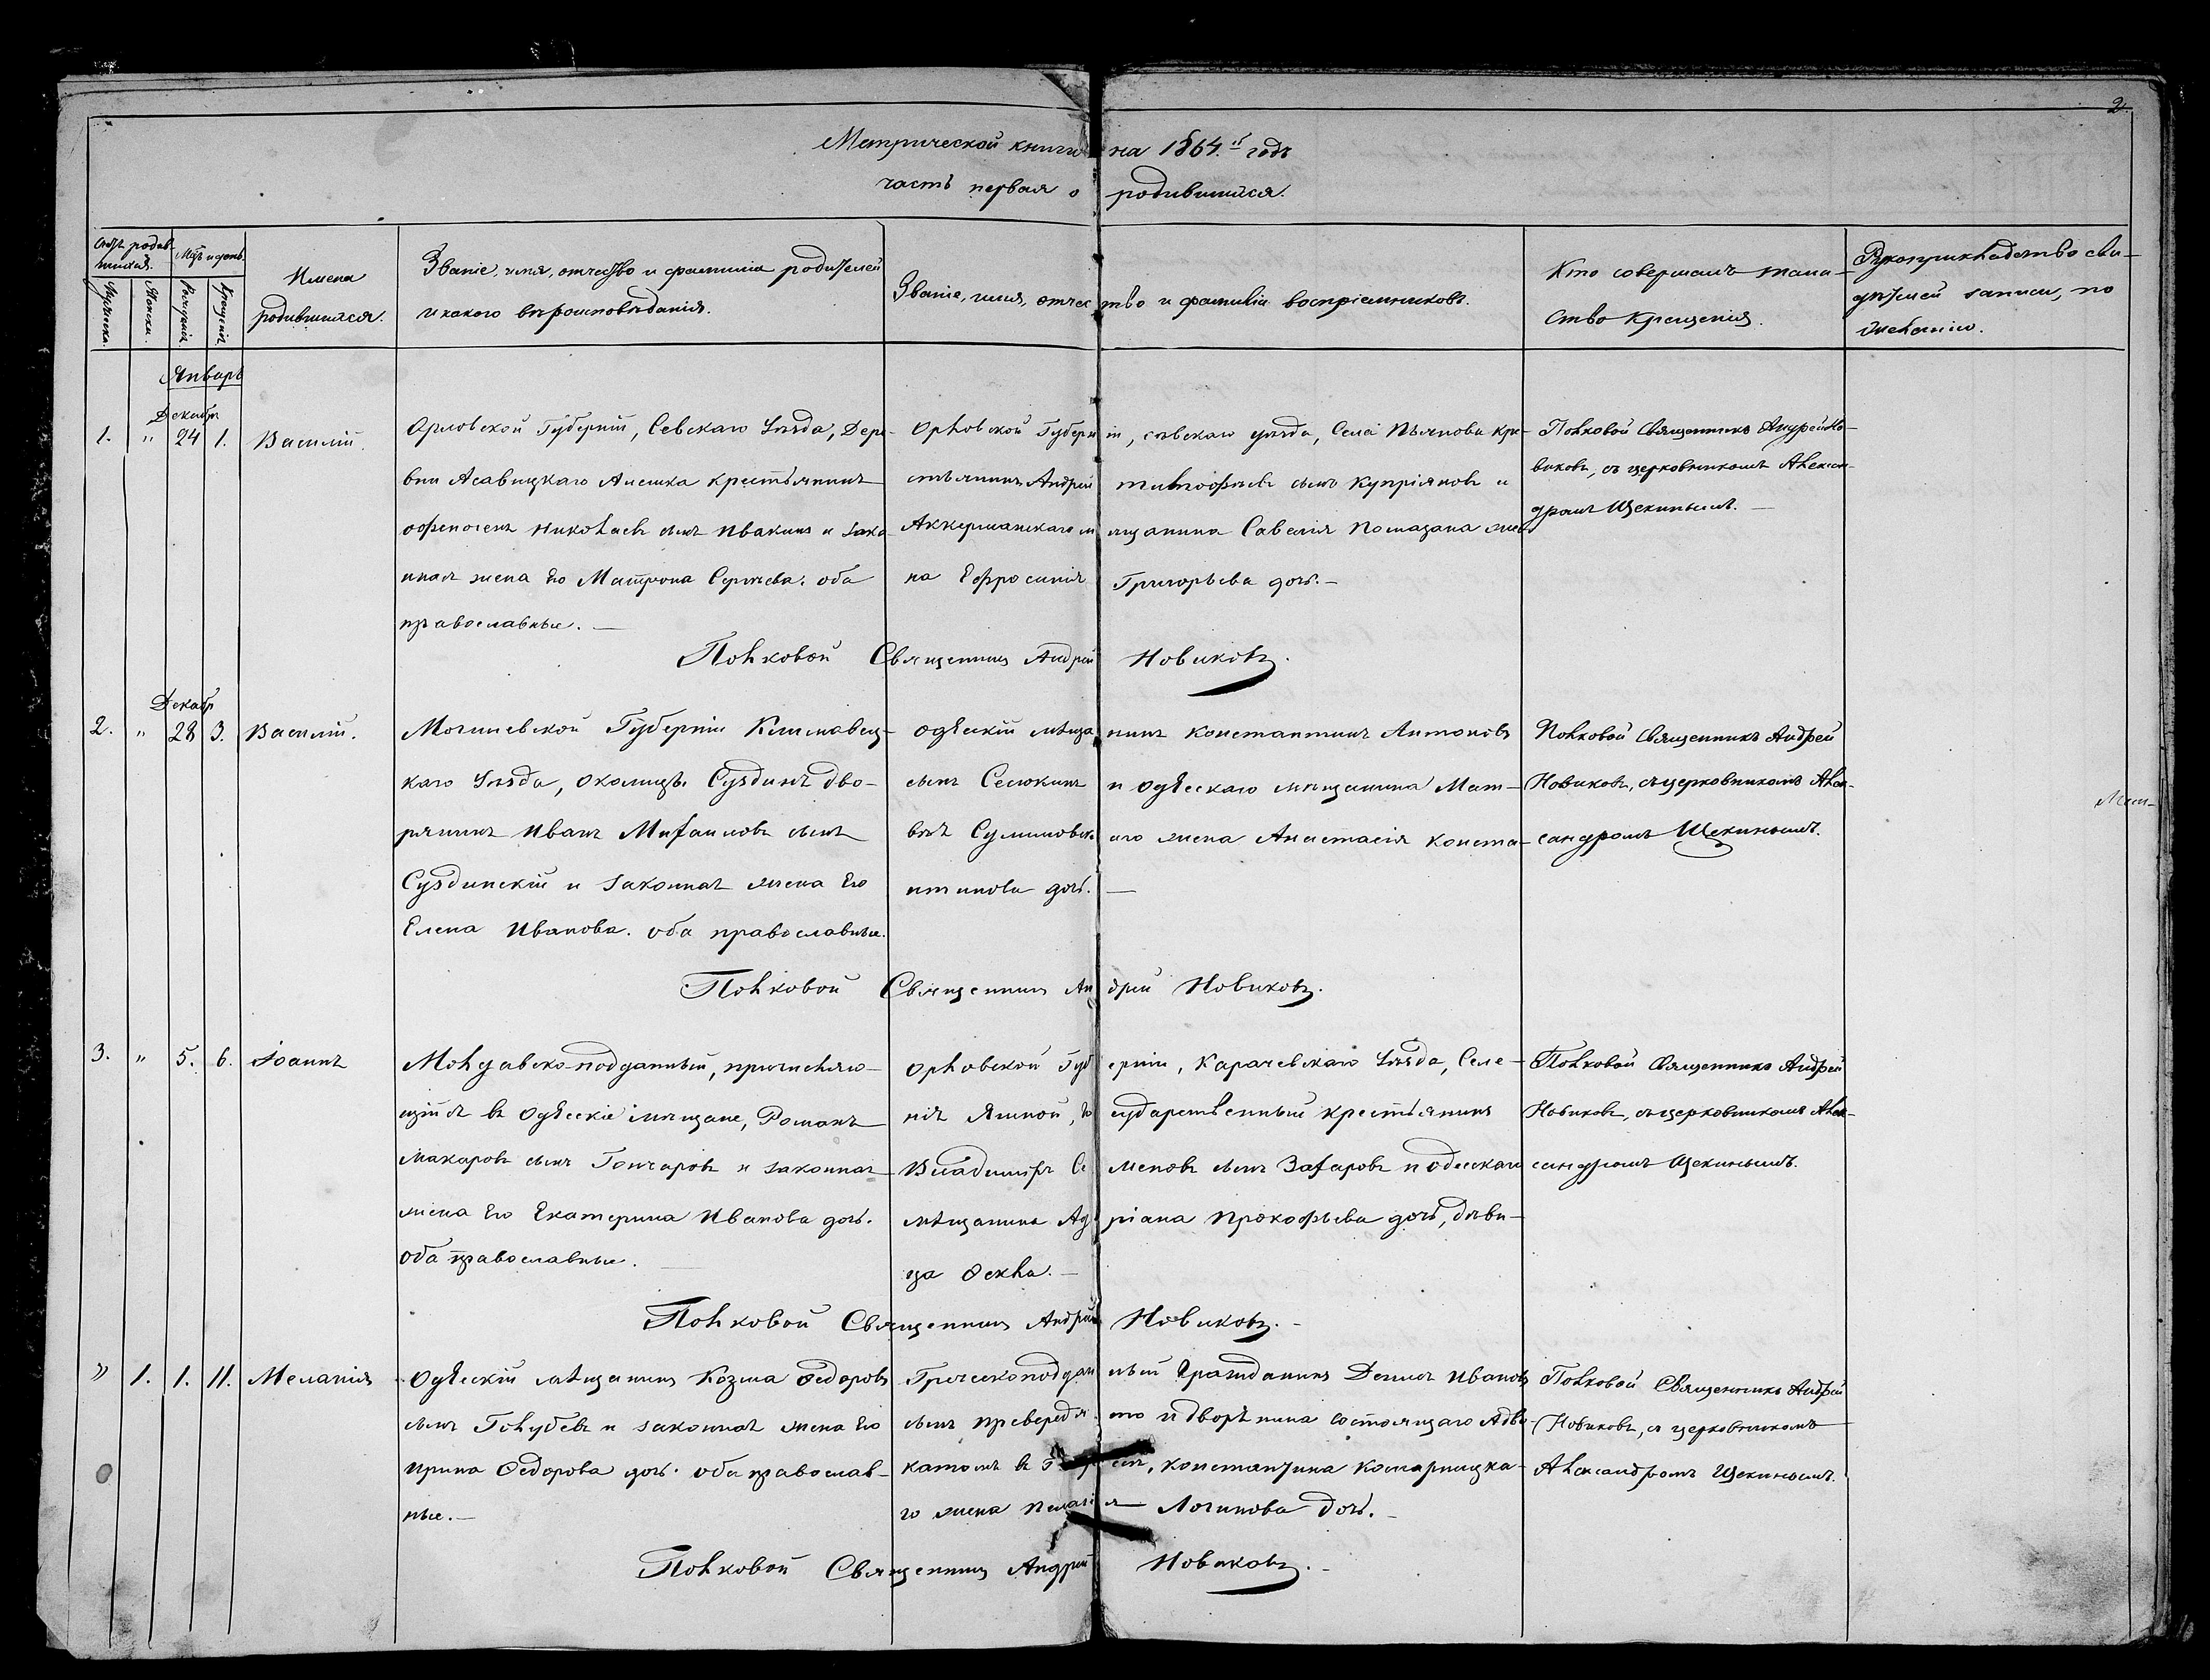 2.
Метрической книги на 1864.й годъ
часть первая о родившихся.
Счетъ родив-
шихся.
Мужеска.
Женска.
Мцъ и день.
Рожденія.
Крещенія.
Имена
родившихся.
Званіе, имя, отчество и фамилія родителей
и какого вѣроисповѣданія.
Званіе, имя, отчество и фамилія воспріемниковъ.
Кто совершалъ таин-
ство крещенія.
Рукоприкладство сви-
дѣтелей записи, по
желанію.
Январь
Декабр
1. " 24 1. Василій.
Орловской Губерніи, Севскаго Уѣзда, Дере-
вни крестьянинъ
Николаевъ сынъ Ивакинъ и зако-
нная жена его Матрона Сергѣева. оба
православные. —
Орловской Губерніи, сѣвскаго уѣзда, Села Пьянова кре-
стьянинъ Андрей сынъ Купріяновъ и
Аккерманскаго мѣщанина Савелія Помазана же-
на Ефросинія Григорьева дочь. —
Полковой Священникъ Андрей Но-
виковъ, съ церковникомъ Алексан-
дромъ Щекинымъ. —
Полковой Священникъ Андрей Новиковъ.
Декабр
2. " 28 3. Василій.
Могилевской Губерніи
каго Уѣзда, околицы Суздинъ дво-
рянинъ Иванъ Михаиловъ сынъ
Суздинскій и законная жена его
Елена Иванова. оба православные.
Одесскій мѣщанинъ Константинъ Антоновъ
сынъ Селюкинъ и Одесскаго мѣщанина Мат-
вѣя Сулимовскаго жена Анастасія Конста-
нтинова дочь. —
Полковой Священникъ Андрей
Новиковъ, съ церковникомъ Алек-
сандромъ Щекинымъ.
Мат-
Полковой Священникъ Андрей Новиковъ.
3. " 5. 6. Іоаннъ
Молдавско-подданный, причисляю-
щійся въ Одесскіе мѣщане, Романъ
Макаровъ сынъ Гончаровъ и законная
жена его Екатерина Иванова дочь.
оба православные. —
Орловской Губерніи, Карачевскаго Уѣзда, Селе-
нія Ямной, Государственный крестьянинъ
Владиміръ Семеновъ сынъ Захаровъ и одесскаго
мѣщанина Адріана Прокофьева дочь, дѣви-
ца Ѳекла. —
Полковой Священникъ Андрей
Новиковъ, съ церковникомъ Алек-
сандромъ Щекинымъ.
Полковой Священникъ Андрей Новиковъ. —
" 1. 1. 11. Меланія
Одесскій мѣщанинъ Козма Ѳедоровъ
сынъ Голубевъ и законная жена его
Ирина Ѳедорова дочь. оба православ-
ные. —
Греческоподданный Гражданинъ Демъ Ивановъ
сынъ и дворянина состоящаго Адво-
катомъ въ Константина Комарницка-
го жена Пелагія Логинова дочь. —
Полковой Священникъ Андрей
Новиковъ, съ церковникомъ
Александромъ Щекинымъ.
Полковой Священникъ Андрей Новиковъ. —